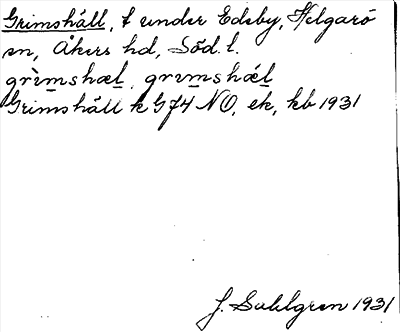 Grimshäll, t under Edeby, Helgarö
sn, Åkers hd, Söd. l.
grìmshæl, grımshǽl
Grimshäll k G74 NO, ek, kb 1931
J. Sahlgren 1931